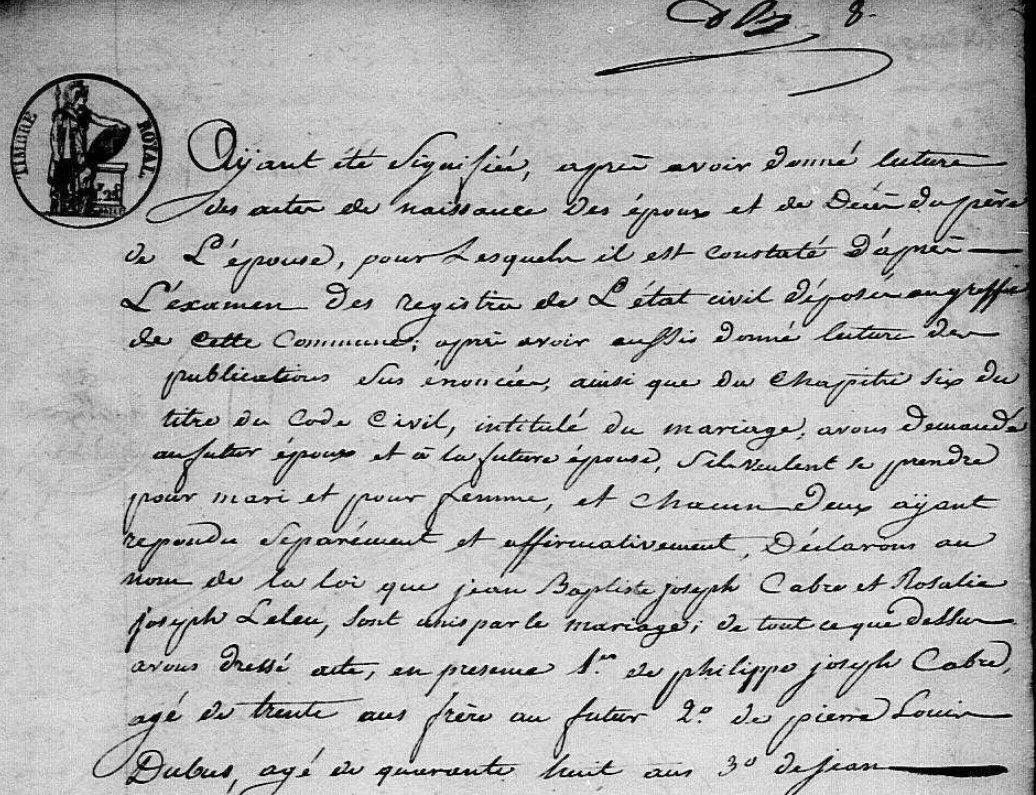 8.
TIMBRE ROYAL
Ayant été Signifiée, après avoir donné lecture
des actes de naissance des époux et de Décès du père
de L'épouse, pour Lesquels il est constaté D'après
L'éxamen Des registres de L'état civil déposés au greffe
de cette Commune; après avoir aussis donné lecture des
publications sus énoncées, ainsi que du Chapitre six du
titre du Code Civil, intitulé du mariage, avons demandé
au futur époux et à la future épouse, s'ils veulent se prendre
pour mari et pour femme, et chacun d'eux ayant
repondu séparément et affirmativement, Déclarons au
nom de la loi que jean Baptiste joseph Cabre et Rosalie
joseph Leleu, sont unis par le mariage; de tout ce que dessus
avons dressé acte, en présence 1.er de philippe joseph Cabre,
agé de trente ans frère au futur 2.o de pierre Louis
Dubus, agé de quarante huit ans 3.o de jean